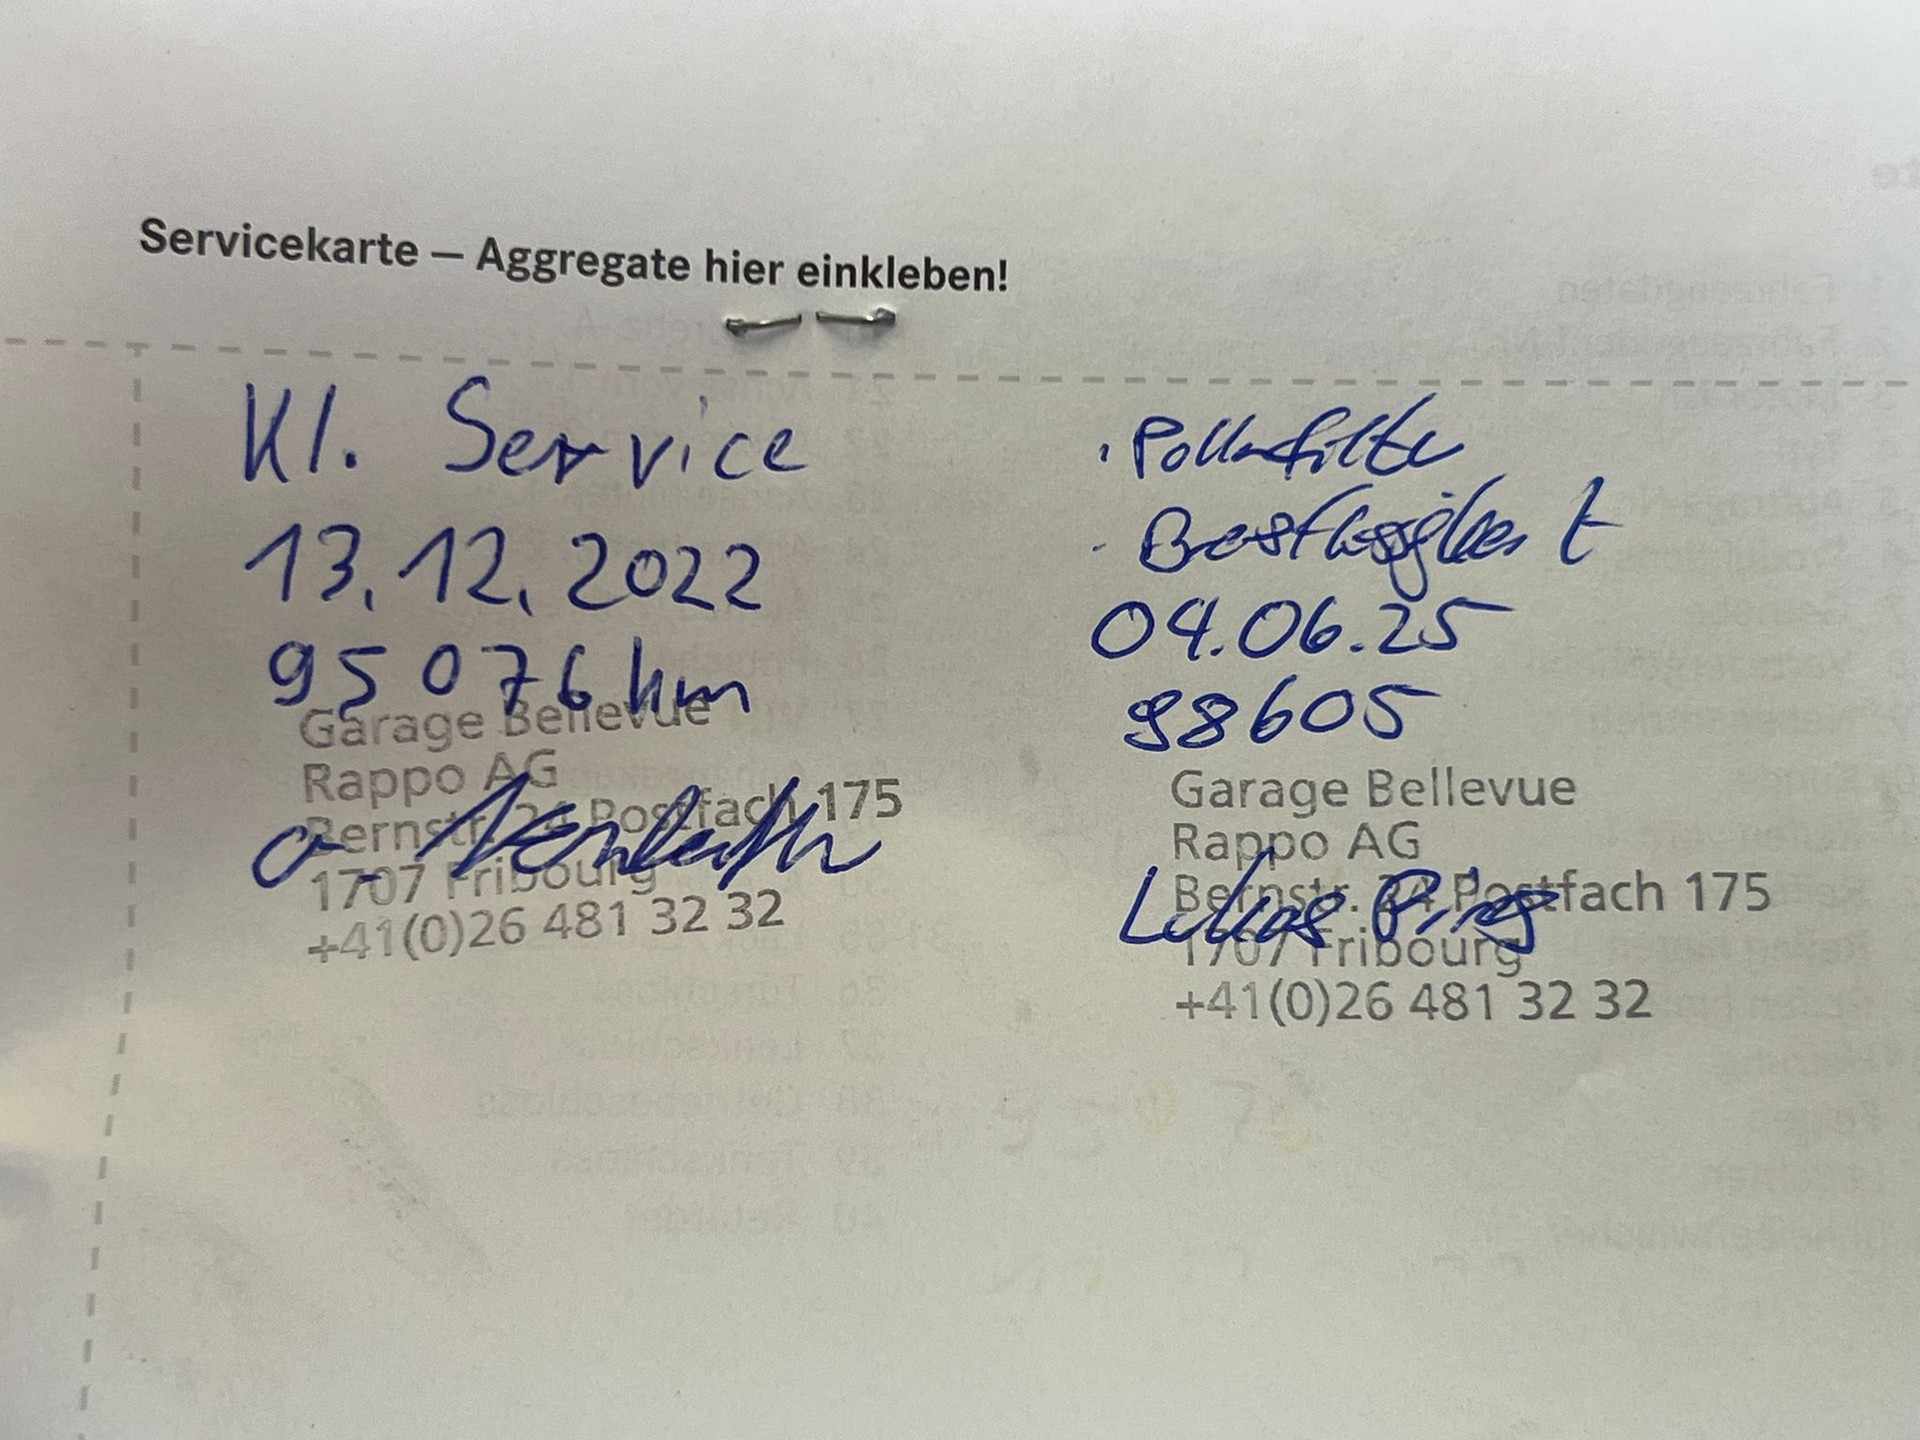 Servicekarte — Aggregate hier einkleben!
Kl. Service
13.12.2022
95 076 km
Garage Bellevue
Rappo AG
Bernstr. 24 Postfach 175
1707 Fribourg
+41(0)26 481 32 32
· Pollenfilter
· Bremsflüssigkeit
04.06.25
98605
Garage Bellevue
Rappo AG
Bernstr. 24 Postfach 175
Lukas
1707 Fribourg
+41(0)26 481 32 32